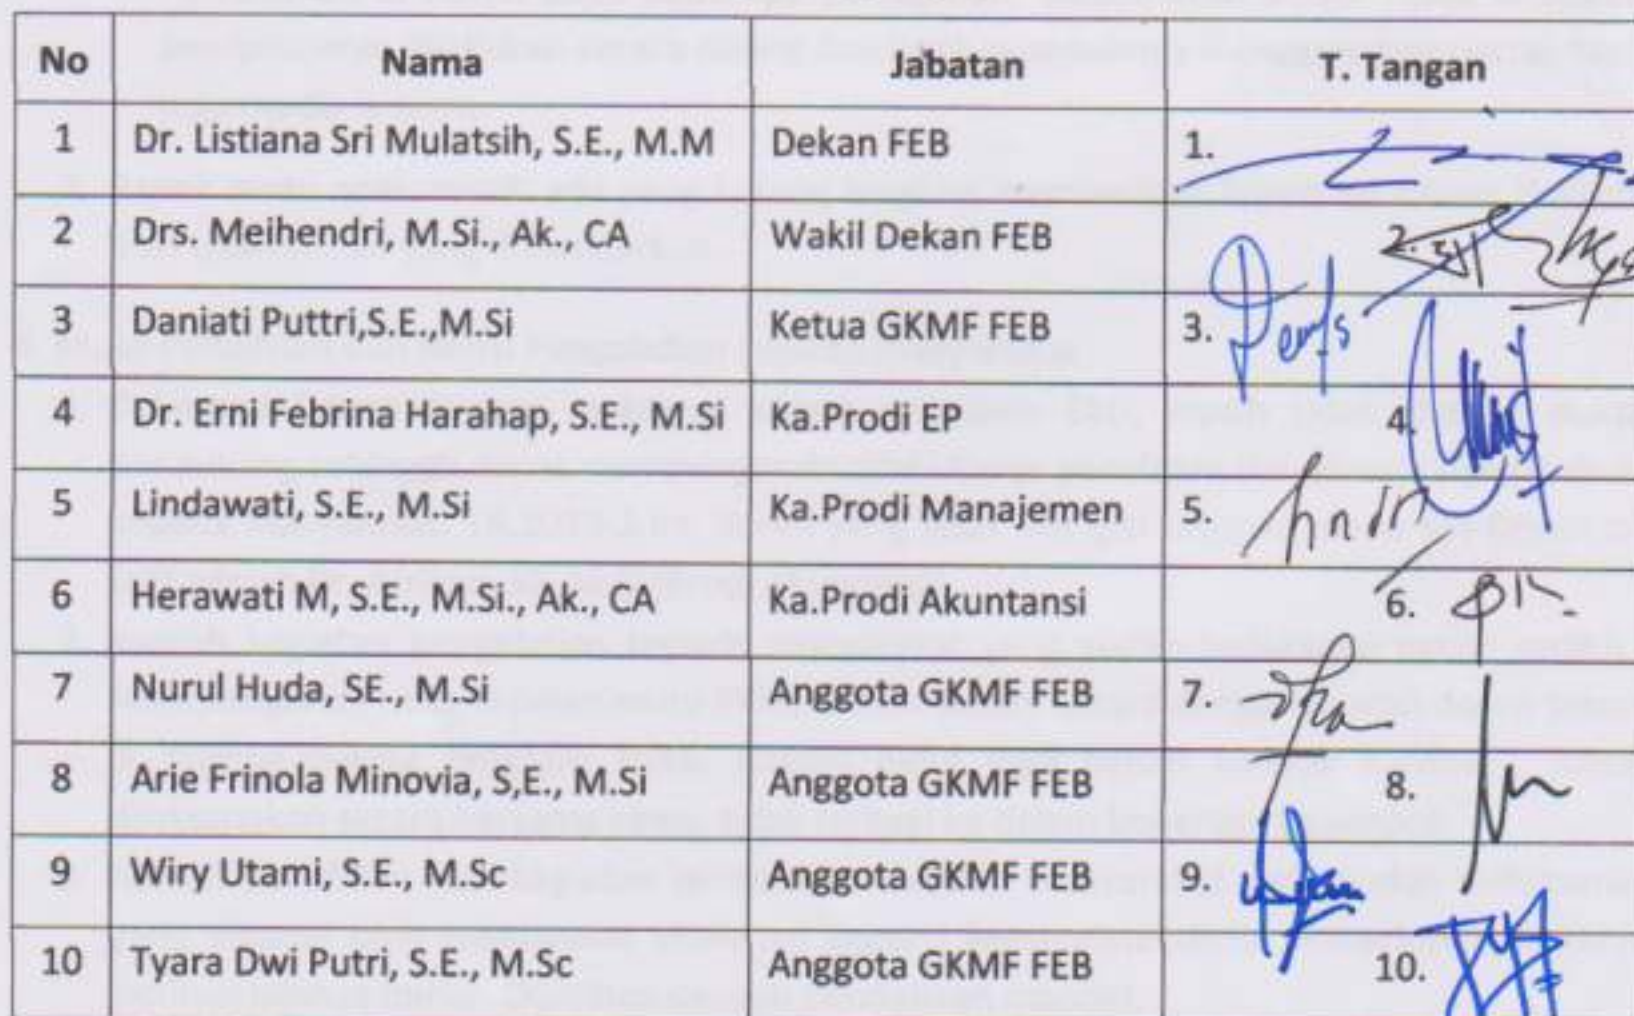 No Nama Jabatan T. Tangan
1 Dr. Listiana Sri Mulatsih, S.E., M.M Dekan FEB 1.
2 Drs. Meihendri, M.Si., Ak., CA Wakil Dekan FEB 2.
3 Daniati Puttri,S.E.,M.Si Ketua GKMF FEB 3.
4 Dr. Erni Febrina Harahap, S.E., M.Si Ka.Prodi EP 4.
5 Lindawati, S.E., M.Si Ka.Prodi Manajemen 5.
6 Herawati M, S.E., M.Si., Ak., CA Ka.Prodi Akuntansi 6.
7 Nurul Huda, SE., M.Si Anggota GKMF FEB 7.
8 Arie Frinola Minovia, S,E., M.Si Anggota GKMF FEB 8.
9 Wiry Utami, S.E., M.Sc Anggota GKMF FEB 9.
10 Tyara Dwi Putri, S.E., M.Sc Anggota GKMF FEB 10.